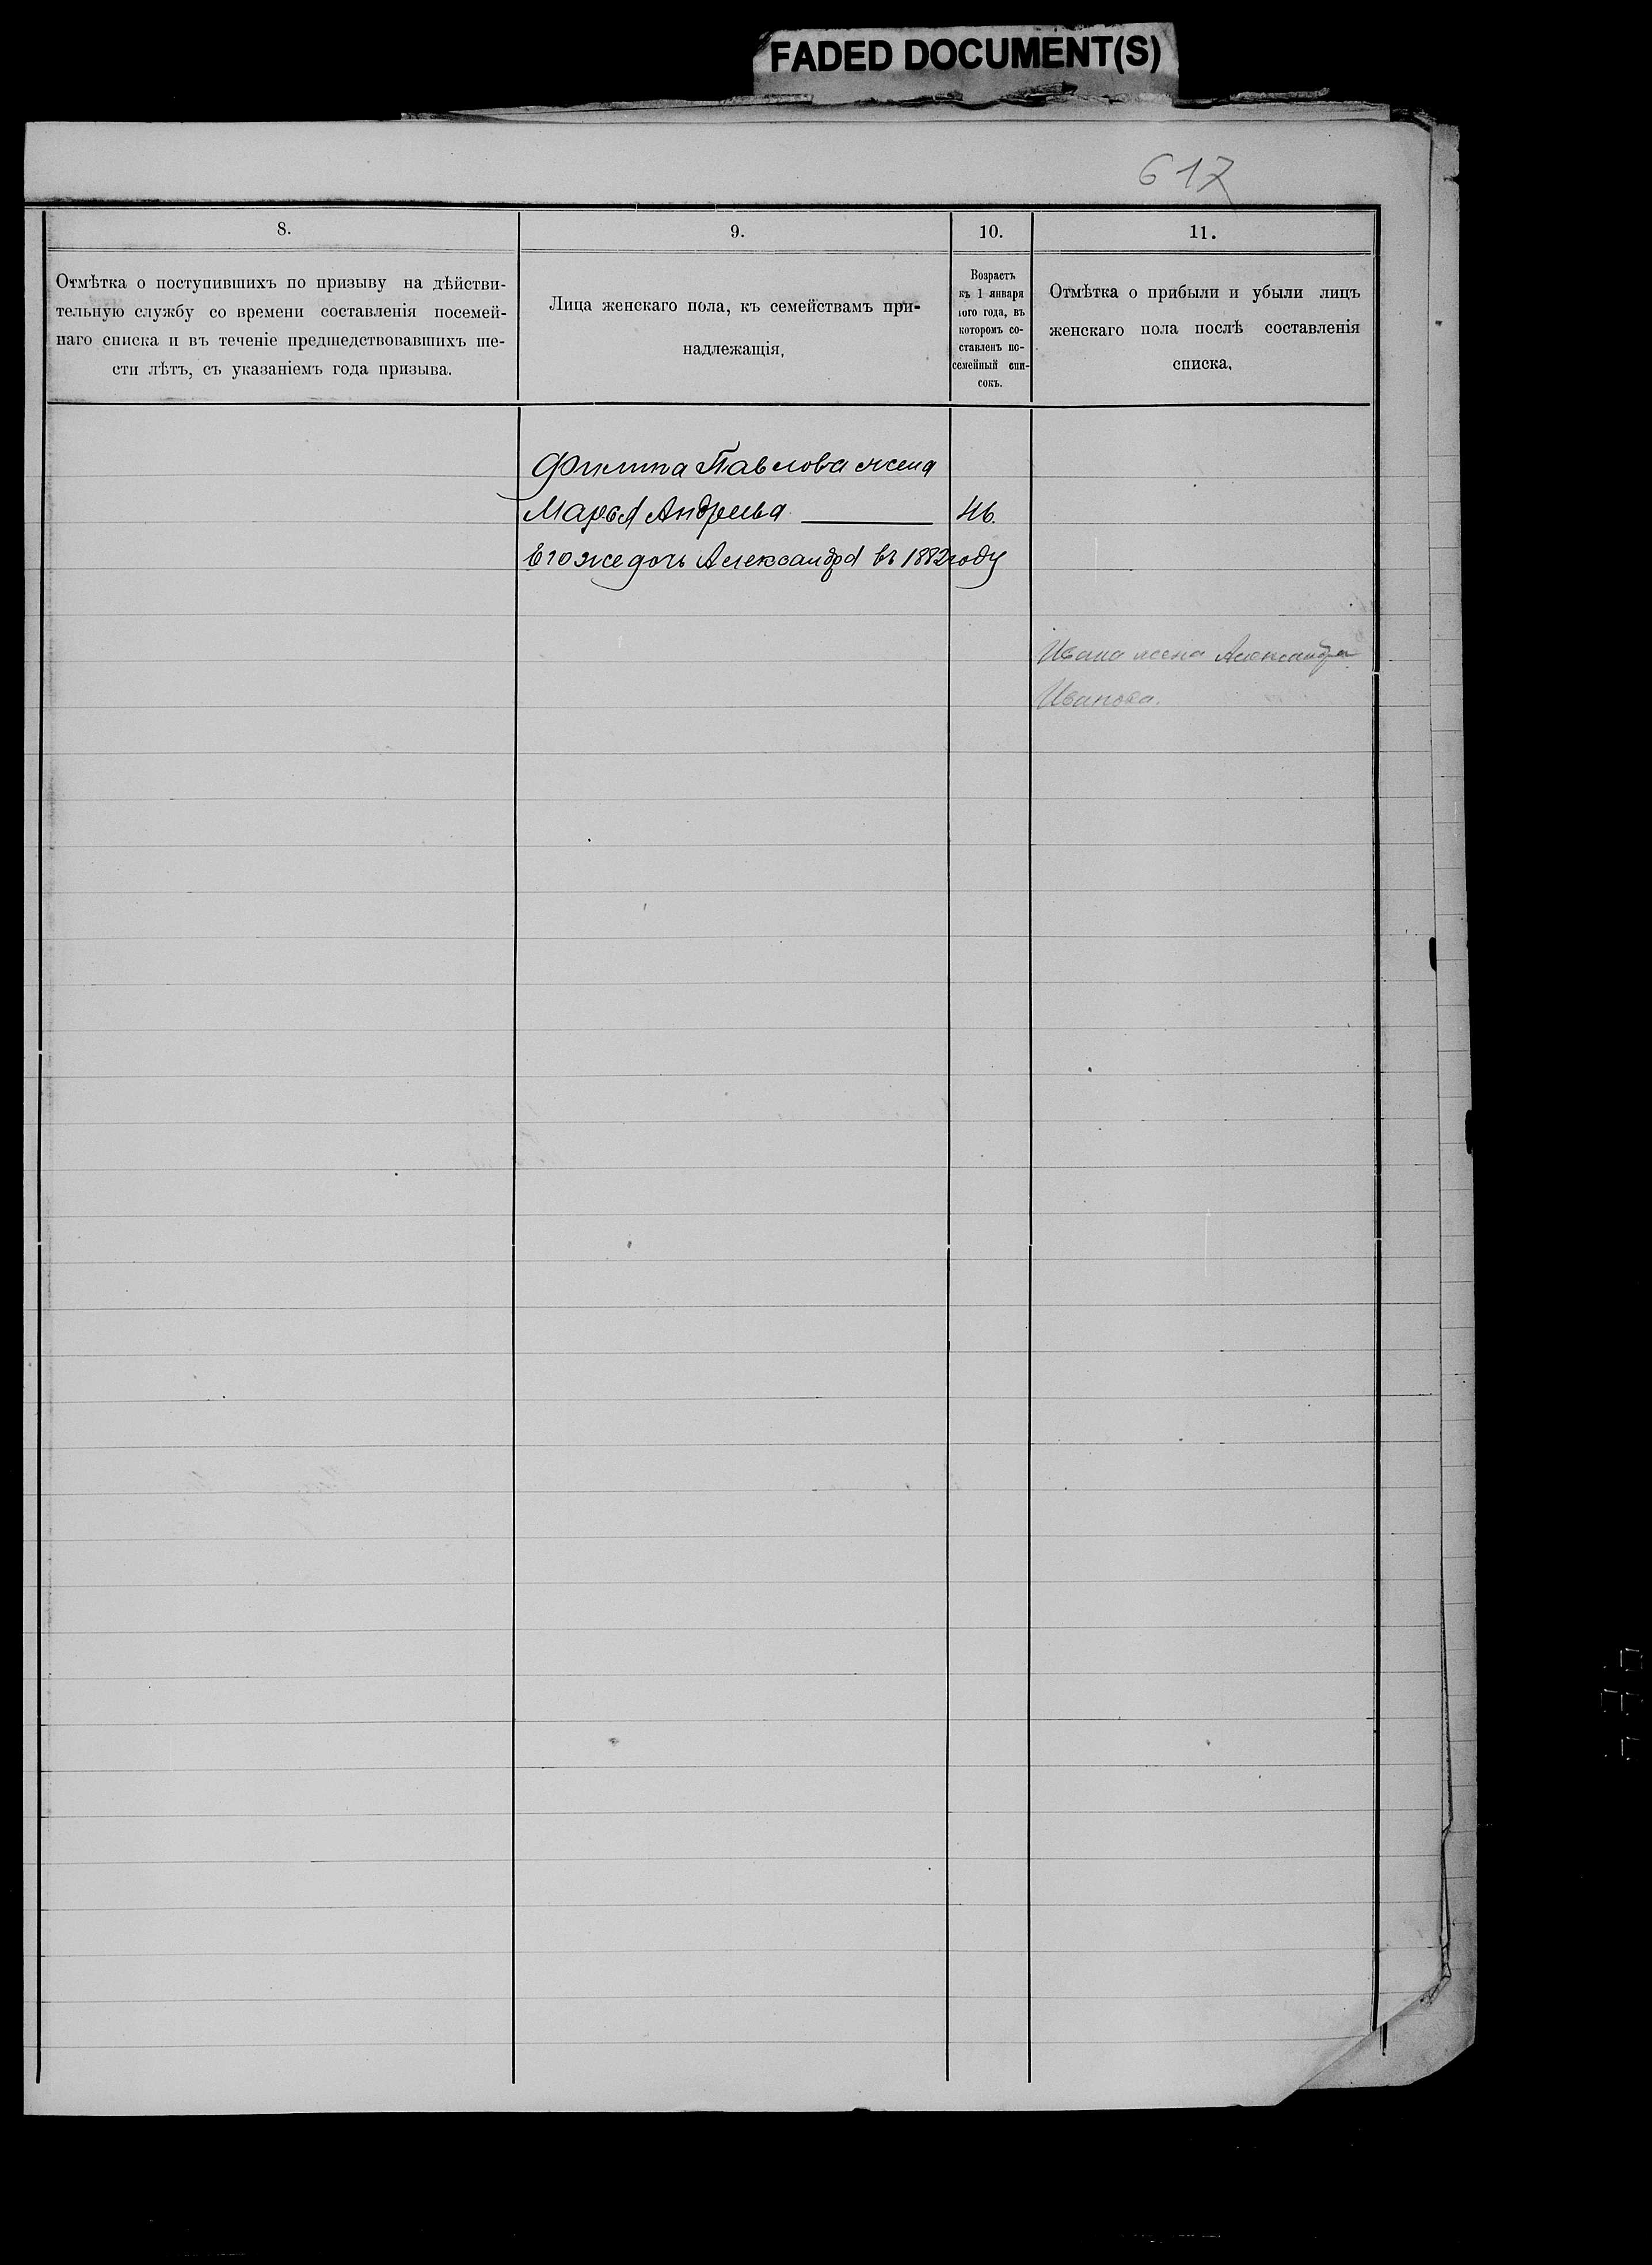 FADED DOCUMENT(S)
617
8.
Отмѣтка о поступившихъ по призыву на дѣйстви-
тельную службу со времени составленія посемей-
наго списка и въ теченіе предшедствовавшихъ ше-
сти лѣтъ, съ указаніемъ года призыва.
9.
Лица женскаго пола, къ семействамъ при-
надлежащія,
10.
Возрастъ
къ 1 января
того года, въ
которомъ со-
ставленъ по-
семейный спи-
сокъ.
11.
Отмѣтка о прибыли и убыли лицъ
женскаго пола послѣ составленія
списка.
Филипа Павлова жена
Марья Андреева 46.
Его же дочь Александра въ 1882 году
Ивана жена Александра
Иванова.